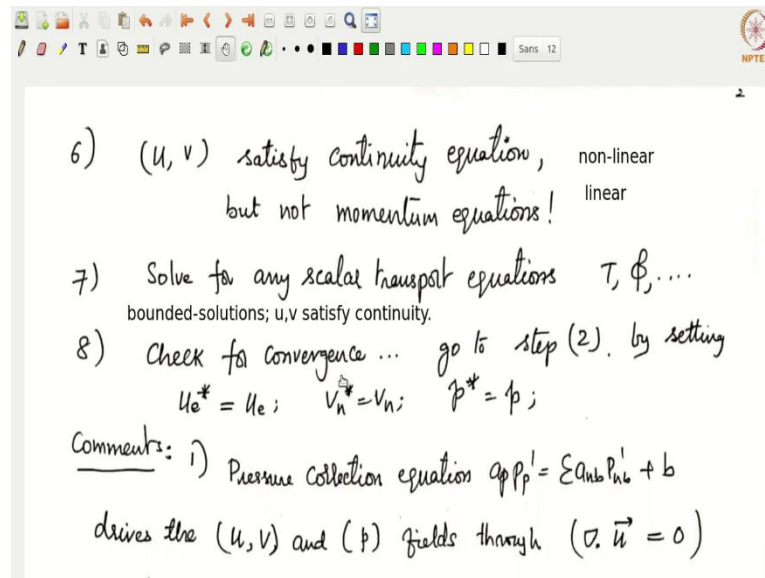 Sans 12
NPTE
2
6) (u, v) satisfy continuity equation, non-linear
but not momentum equations! linear
7) Solve for any scalar transport equations T, ϕ,....
bounded-solutions; u,v satisfy continuity.
8) Check for convergence ... go to step (2). by setting
u_e* = u_e; v_n* = v_n; p* = p;
Comments: i) Pressure correction equation a_p p_p' = Σ a_nb p_nb' + b
drives the (u, v) and (p) fields through (∇. u⃗ = 0)